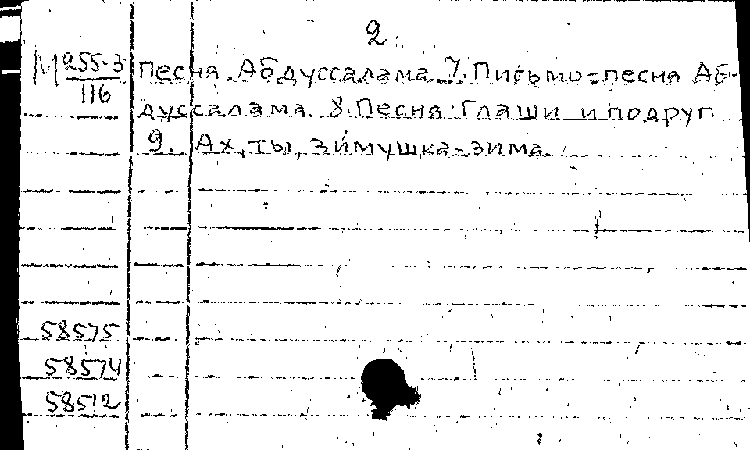 2.
М 255-3 Песня Абдуссалама 7. Письмо-песня Аб-
116 дуссалама. 8. Песня Глаши и подруг
9. Ах, ты, зимушка-зима
58575
58574
58512